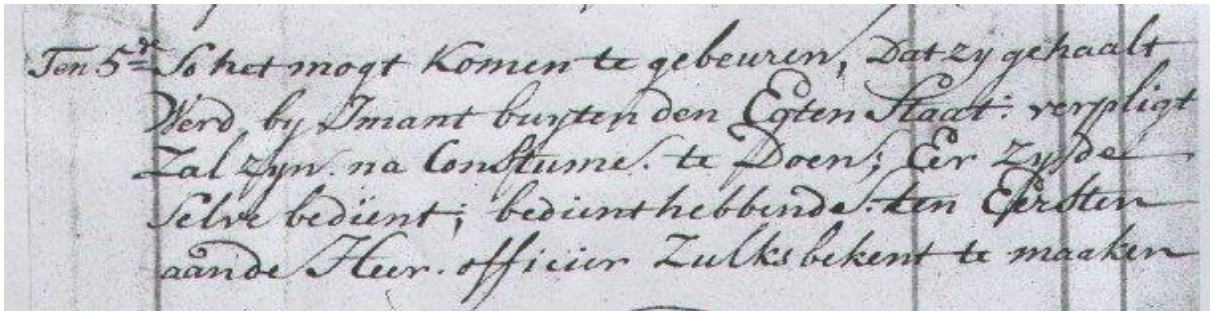 Ten 5de So het mogt Komen te gebeuren, Dat zy gehaalt
Werd, by Imant buyten den Egten Staat: verpligt
Zal zyn. na Constume. te Doen; Eer Zy de
Selve bedient; bedient hebbende. ten Eersten
aande Heer. officier Zulks bekent te maaken